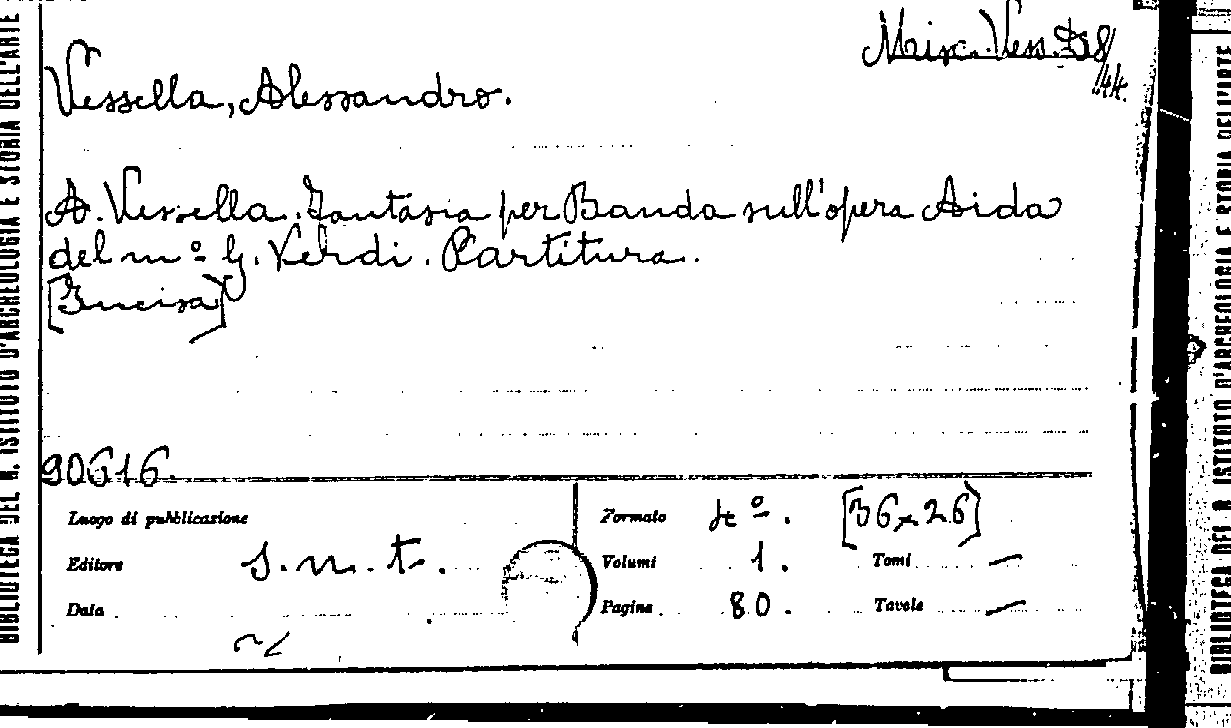 Misc. Vess. B 8/44.
Vessella, Alessandro.
A. Vessella. Fantasia per Banda sull'opera Aida
del m.º G. Verdi. Partitura.
[Incisa]
90616.
Luogo di pubblicazione
Formato 4º. [36x26]
Editore s.n.t.
Volumi 1. Tomi —
Data
Pagine 80. Tavole —
BIBLIOTECA DEL R. ISTITUTO D'ARCHEOLOGIA E STORIA DELL'ARTE
BIBLIOTECA DEL R. ISTITUTO D'ARCHEOLOGIA E STORIA DELL'ARTE